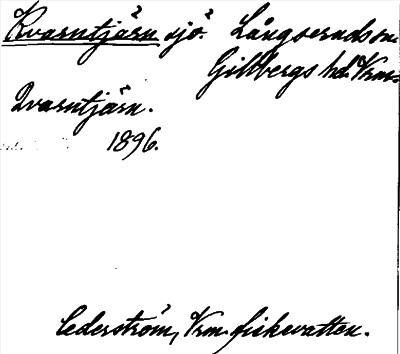 Kvarntjärn sjö. Långseruds sn.
Gillbergs hd. Vrml.
Qvarntjärn.
1896.
Cederström, Vrm. fiskevatten.